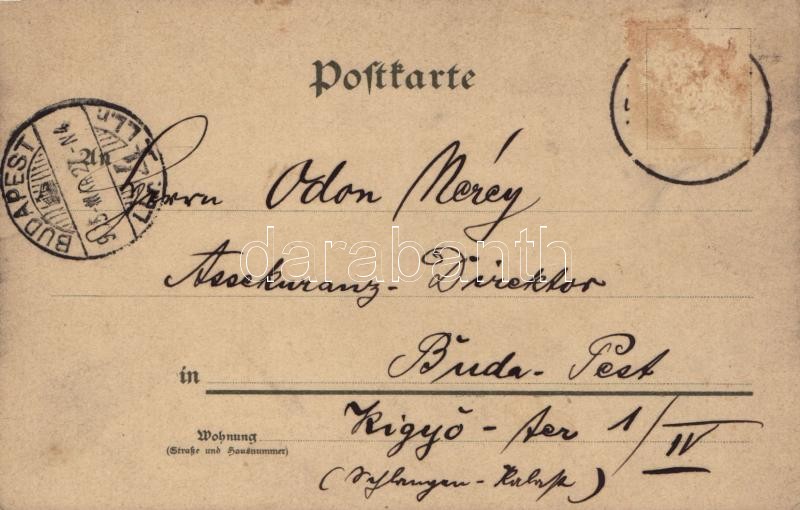 Postkarte
BUDAPEST
An
Herrn Odon Nérey
Assekuranz-Direktor
in Buda-Pest
Wohnung
(Straße und Hausnummer)
Kigyó-ter 1/IV
(Schlangen-
darabanth